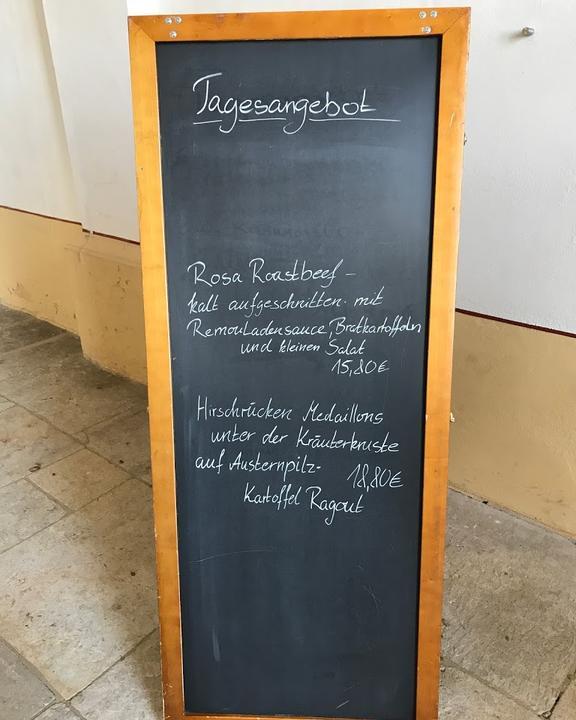 Tagesangebot
Rosa Roastbeef –
kalt aufgeschnitten mit
Remouladensauce, Bratkartoffeln
und kleinen Salat
15,80€
Hirschrücken Medaillons
unter der Kräuterkruste
auf Austernpilz- 18,80€
Kartoffel Ragout